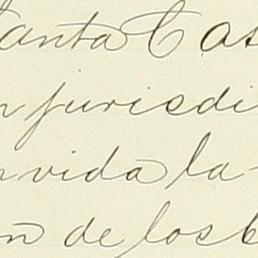 anta Cas
n jurisdi
n vida la-
ón de los